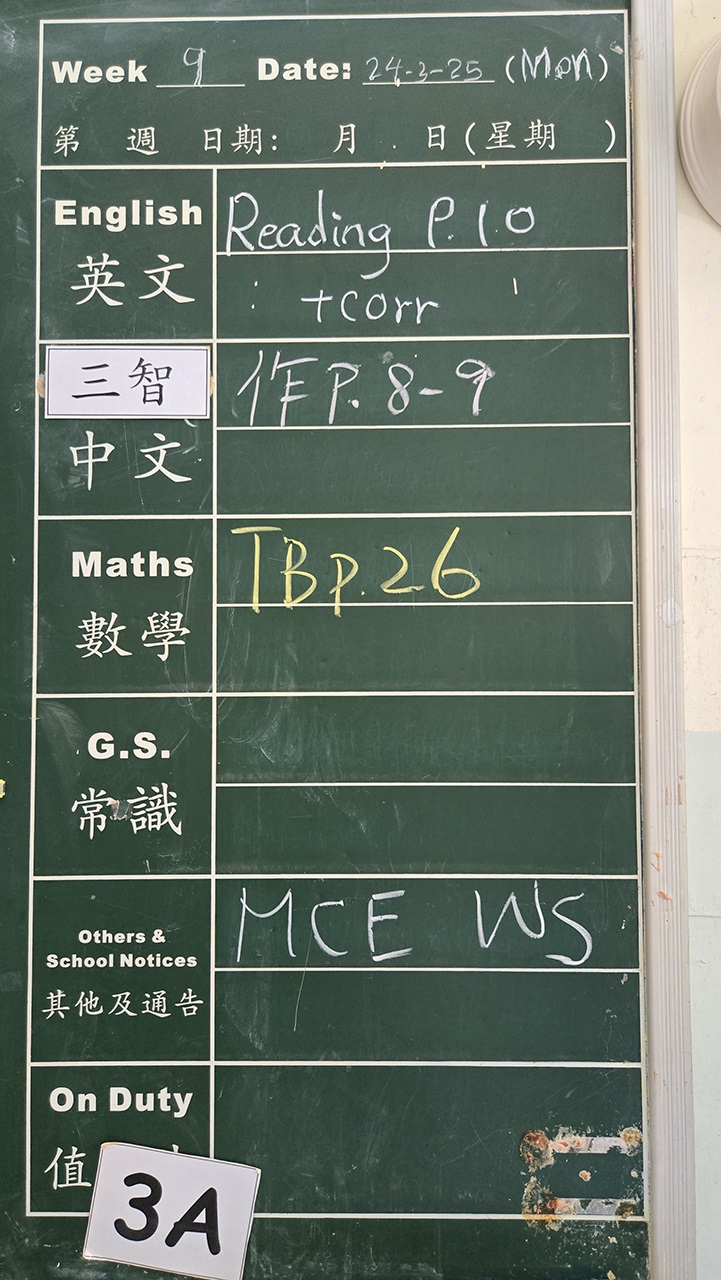 Week 9 Date: 24-3-25 (Mon)
第 週 日期: 月 日(星期 )
English Reading P.10
英文 +corr
三智 作P. 8-9
中文
Maths TB P.26
數學
G.S.
常識
Others & MCE WS
School Notices
其他及通告
On Duty
值
3A